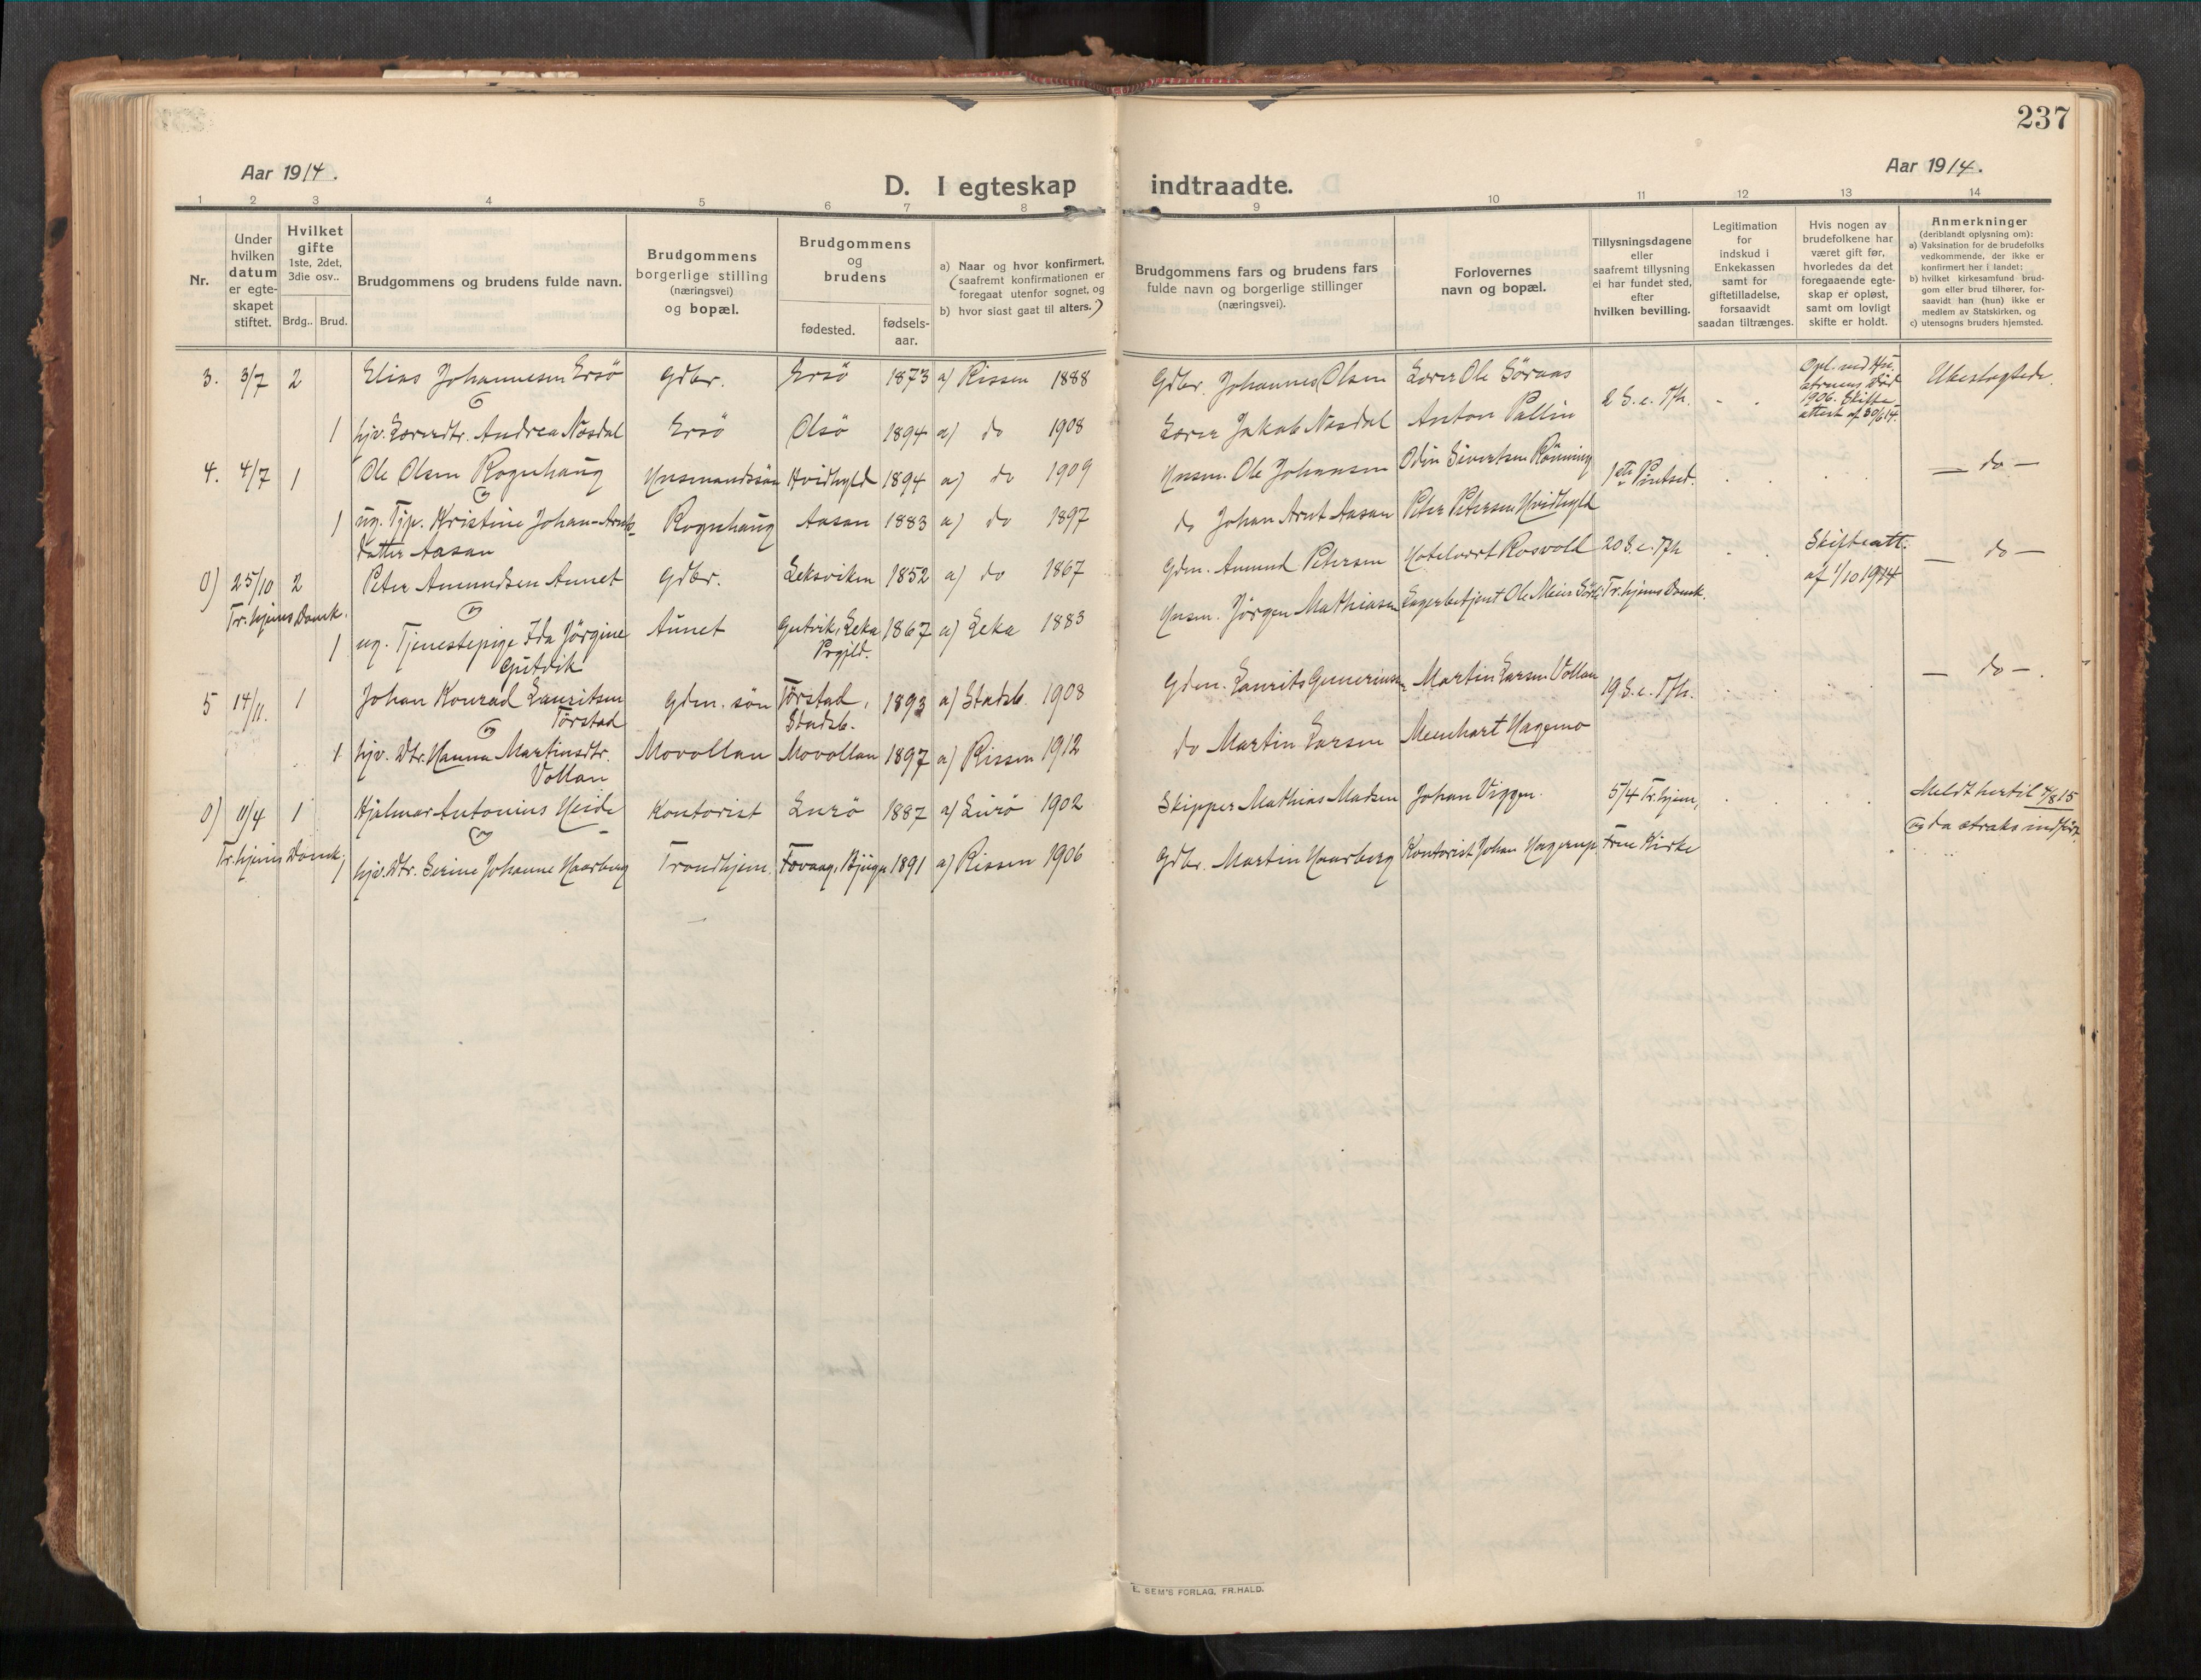 237
Aar 1914.
Aar 1914.
D. I egteskap indtraadte.
1 2 3 4 5 6 7 8 9 10 11 12 13 14
Nr.
Under
hvilken
datum
er egte-
skapet
stiftet.
Hvilket
gifte
1ste, 2det,
3die osv..
Brdg.. Brud.
Brudgommens og brudens fulde navn.
Brudgommens
borgerlige stilling
(næringsvei)
og bopæl.
Brudgommens
og
brudens
fødested.
fødsels-
aar.
a) Naar og hvor konfirmert,
(saafremt konfirmationen er
foregaat utenfor sognet, og
b) hvor sidst gaat til alters.)
Brudgommens fars og brudens fars
fulde navn og borgerlige stillinger
(næringsvei).
Forlovernes
navn og bopæl.
Tillysningsdagene
eller
saafremt tillysning
ei har fundet sted,
efter
hvilken bevilling.
Legitimation
for
indskud i
Enkekassen
samt for
giftetilladelse,
forsaavidt
saadan tiltrænges.
Hvis nogen av
brudefolkene har
været gift før,
hvorledes da det
foregaaende egte-
skap er opløst,
samt om lovligt
skifte er holdt.
Anmerkninger
(deriblandt oplysning om):
a) Vaksination for de brudefolks
vedkommende, der ikke er
konfirmert her i landet;
b) hvilket kirkesamfund brud-
gom eller brud tilhører, for-
saavidt han (hun) ikke er
medlem av Statskirken, og
c) utensogns bruders hjemsted.
3. 3/7 2 Elias Johannesen Ersö Gdbr. Ersö 1873 a) Rissen 1888 Gdbr. Johannes Olsen Lærer Ole Söraas 2 S. e. Tfh. Opl. ved Hu-
struens Död
1906. Skifte-
attest af 30/6 14. Ubeslægtede.
og
1 hjv. Lærerdtr. Andrea Nosdal Ersö Olsö 1894 a) do 1908 Lærer Jakob Nosdal Anton Pallin
4. 4/7 1 Ole Olsen Rognhaug Husmandssön Hvidhyld 1894 a) do 1909 Husm. Ole Johansen Odin Sivertsen Rönning 1ste Pintsed. — do —
og
1 ug. Tjp. Kristine Johan-Arnts- Rognhaug Aasan 1883 a) do 1897 do Johan Arnt Aasan Peter Petersen Hvidhyld
datter Aasan
0) 25/10 2 Peter Amundsen Aunet Gdbr. Leksviken 1852 a) do 1867 Gdm. Amund Petersen Hotelvært Rosvold 20 S. e. Tfh Skifteatt.
af 1/10 1914 — do —
Tr.hjems Domk. og
1 ug. Tjenestepige Ida Jörgine Aunet Gutvik, Leka 1867 a) Leka 1883 Husm. Jörgen Mathiasen Lagerbetjent Ole Meier Tr.hjems Domk.
Gutvik Prgjld.
5 14/11. 1 Johan Konrad Lauritsen Gdm. sön Törstad, 1893 a) Stadsb. 1908 Gdm. Laurits Gunerius Martin Larsen Vollan 19 S. e. Tfh. — do —.
Törstad Stadsb.
og
1 hjv. Dtr. Hanna Martinsdtr. Movollan Movollan 1897 a) Rissen 1912 do Martin Larsen Meenhart Hagemo
Vollan
0) 11/4 1 Hjalmar Antonius Heide Kontorist Lurö 1887 a) Lurö 1902 Skipper Mathias Madsen Johan Viggen. 5/4 Tr.hjem, Meldt hertil 4/8 15
og da straks indfört.
og
Tr.hjems Domk; hjv. Dtr. Serine Johanne Haarberg Trondhjem. Fovaag, Bjugn 1891 a) Rissen 1906 Gdbr. Martin Haarberg Kontorist Johan Hagerup Frue Kirke
E. SEM'S FORLAG, FR.HALD.